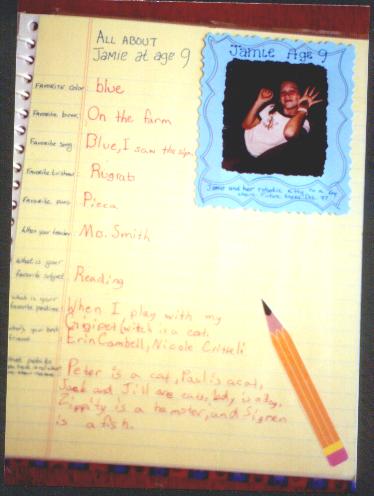 ALL ABOUT
Jamie at age 9
Jamie Age 9
Jamie and her robotic kitty
Favorite color blue
Favorite book On the farm
Favorite song Blue, I saw the sign
Favorite tv show Rugrats
Favorite Pizza
Who's your teacher Ms. Smith
What is your
favorite subject Reading
what is your
favorite pastime When I play with my
Gigipet (witch is a cat.
who's your best
friend Erin Cambell, Nicole
Peter is a cat, Paul is a cat,
Jack and Jill are cats, lady is a dog,
Zippity is a hamster, and
is a fish.